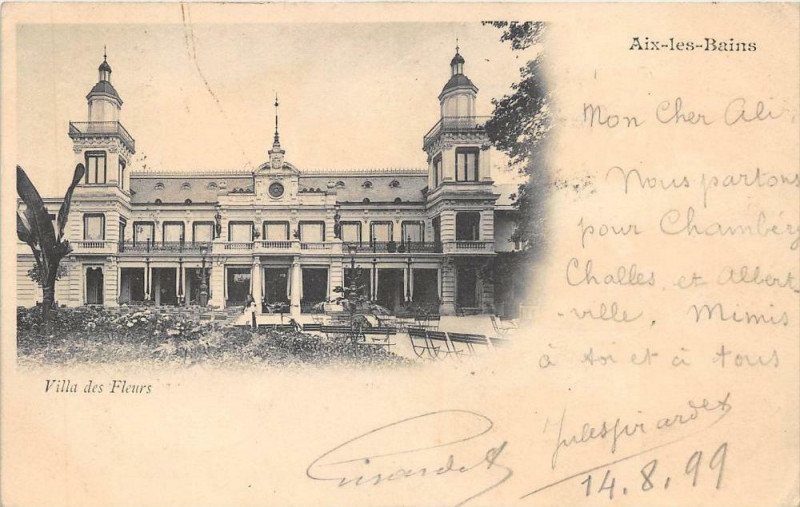 Aix-les-Bains
Mon Cher Ali
Nous partons
pour Chambéry
Challes et Albert
-ville. Mimis
à toi et à tous
Villa des Fleurs
Girardet
Jules Girardet
14.8.99